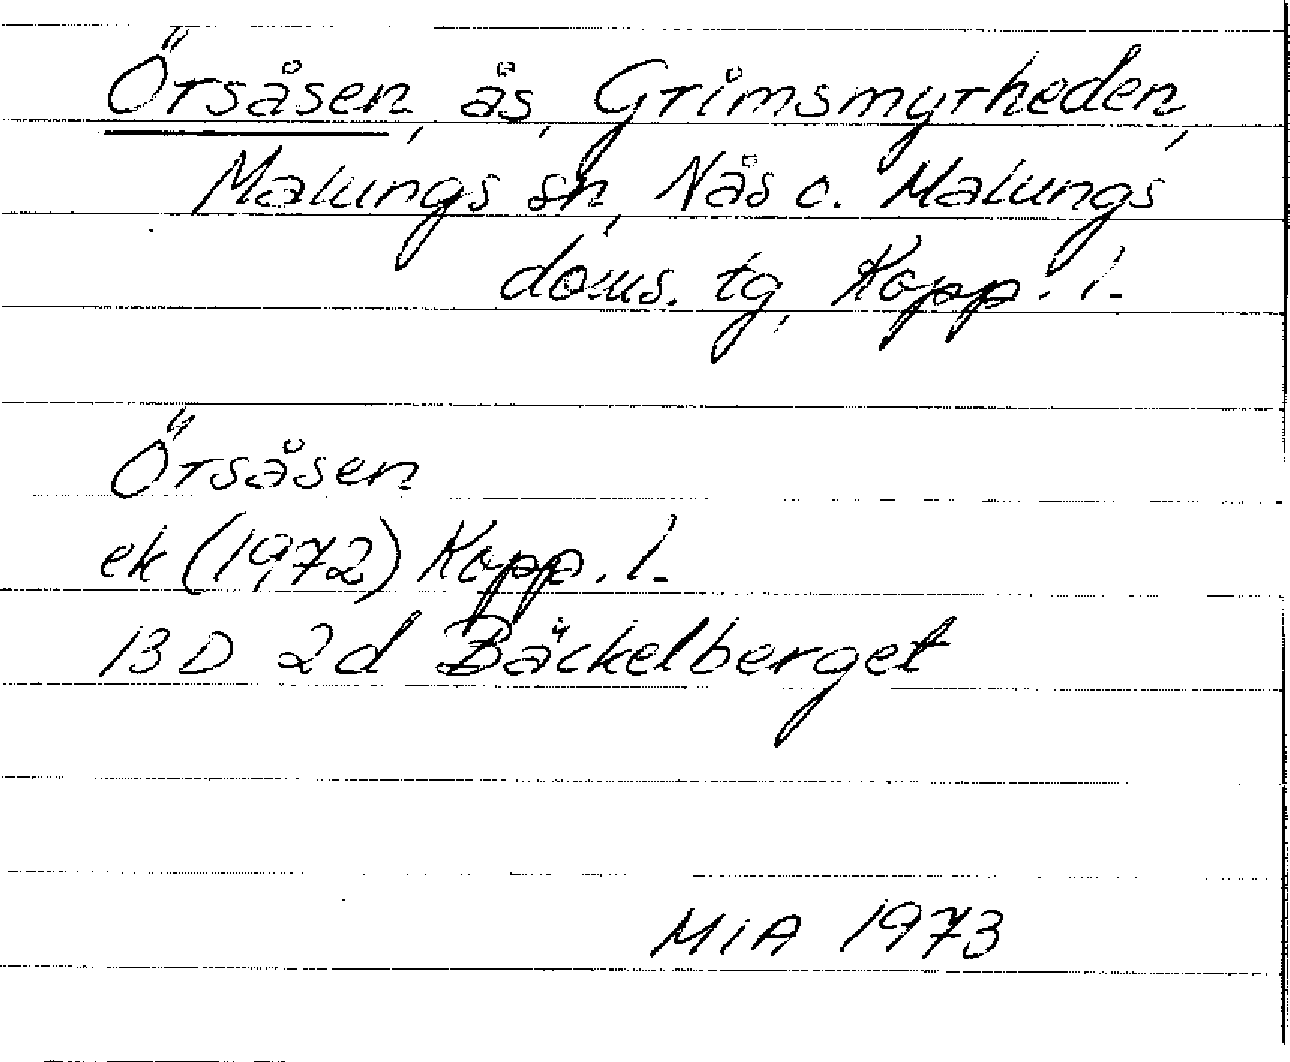 Örsåsen, ås, Grimsmyrheden,
Malungs sn, Nås o. Malungs
doms. tg, Kopp. l.
Örsåsen
ek (1972) Kopp. l.
13 D 2d Bäckelberget
MIA 1973